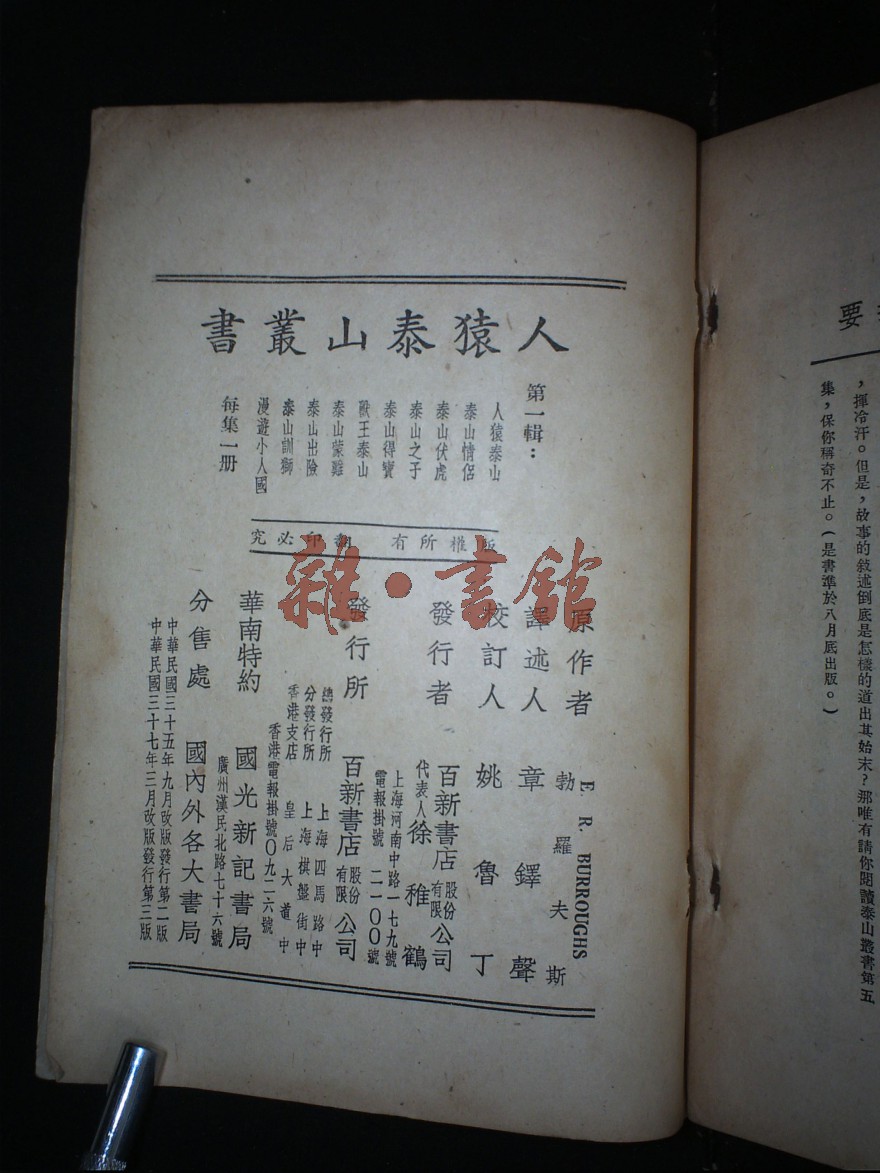 人猿泰山叢書
第一輯：
人猿泰山
泰山情侶
泰山伏虎
泰山之子
泰山得寶
獸王泰山
泰山蒙難
泰山出險
泰山訓獅
漫遊小人國
每集一册
版權所有 翻印必究
雜·書館
原作者 E. R. BURROUGHS
勃羅夫斯
譯述人 章鐸聲
校訂人 姚魯丁
發行者 百新書店股份有限公司
代表人 徐稚鶴
上海河南中路一七九號
電報掛號 二一〇〇號
發行所 百新書店股份有限公司
總發行所 上海四馬路中
分發行所 上海棋盤街中
香港支店 皇后大道中
香港電報掛號〇九二六號
華南特約 國光新記書局
廣州漢民北路七十六號
分售處 國內外各大書局
中華民國三十五年九月改版發行第二版
中華民國三十七年三月改版發行第三版
要
，揮冷汗。但是，故事的敍述倒底是怎樣的道出其始末？那唯有請你閱讀泰山叢書第五
集，保你稱奇不止。（是書準於八月底出版。）